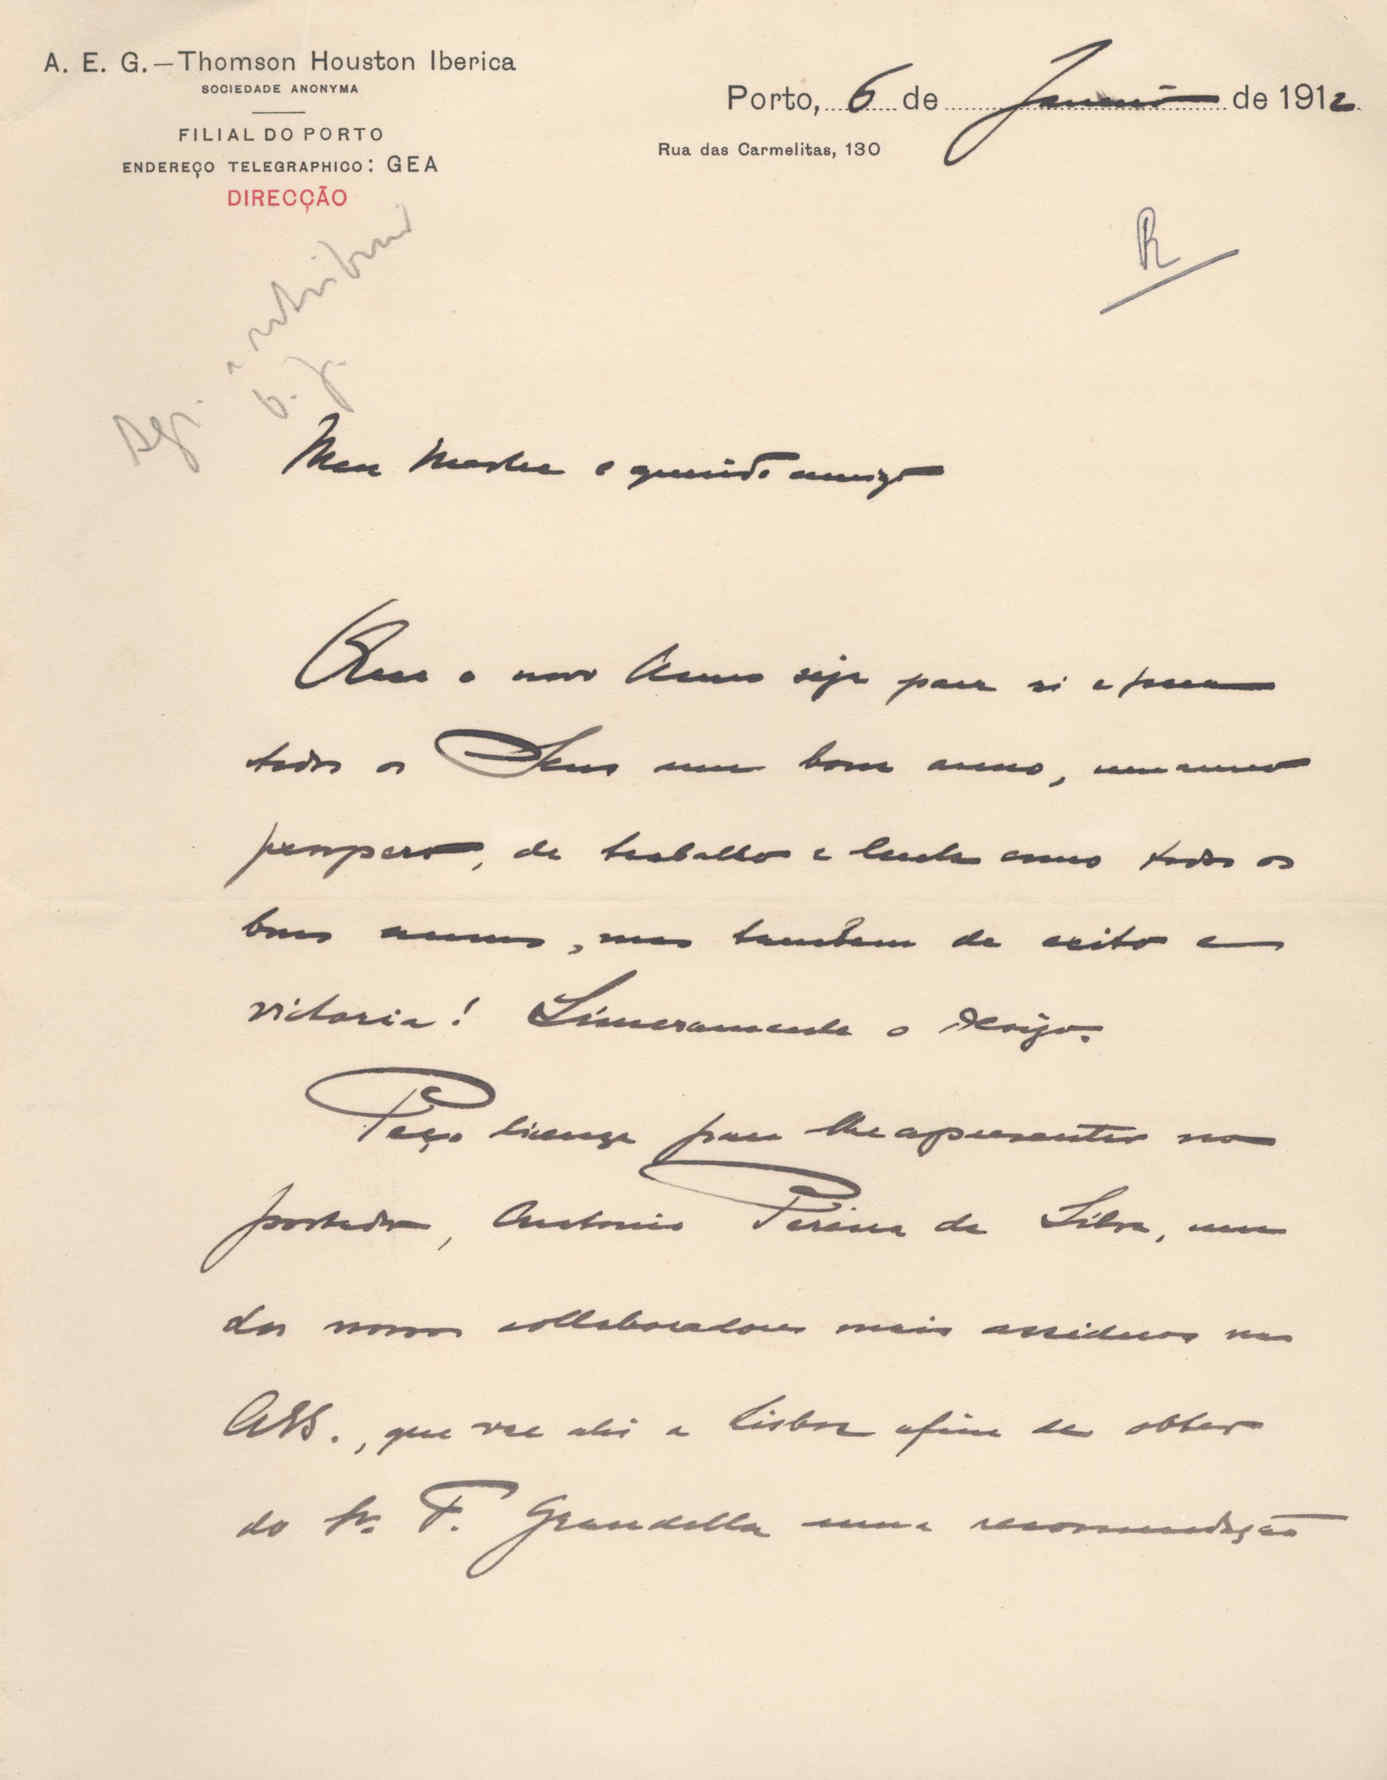 A. E. G.—Thomson Houston Iberica
SOCIEDADE ANONYMA
FILIAL DO PORTO
ENDEREÇO TELEGRAPHICO: GEA
DIRECÇÃO
Porto, 6 de Janeiro de 1912
Rua das Carmelitas, 130
R
Meu Mestre e querido amigo
Que o novo Anno seja para si e para
todos os Seus um bom anno, um anno
prospero, de trabalho e lucta como todos os
bons annos, mas tambem de exito e
victoria! Sinceramente o desejo.
Peço licença para lhe apresentar no
portador, Antonio Pereira da Silva, um
dos nossos collaboradores mais assiduos na
que vae ahi a Lisboa afim de obter
do Sr. F. Grandella uma recommendação